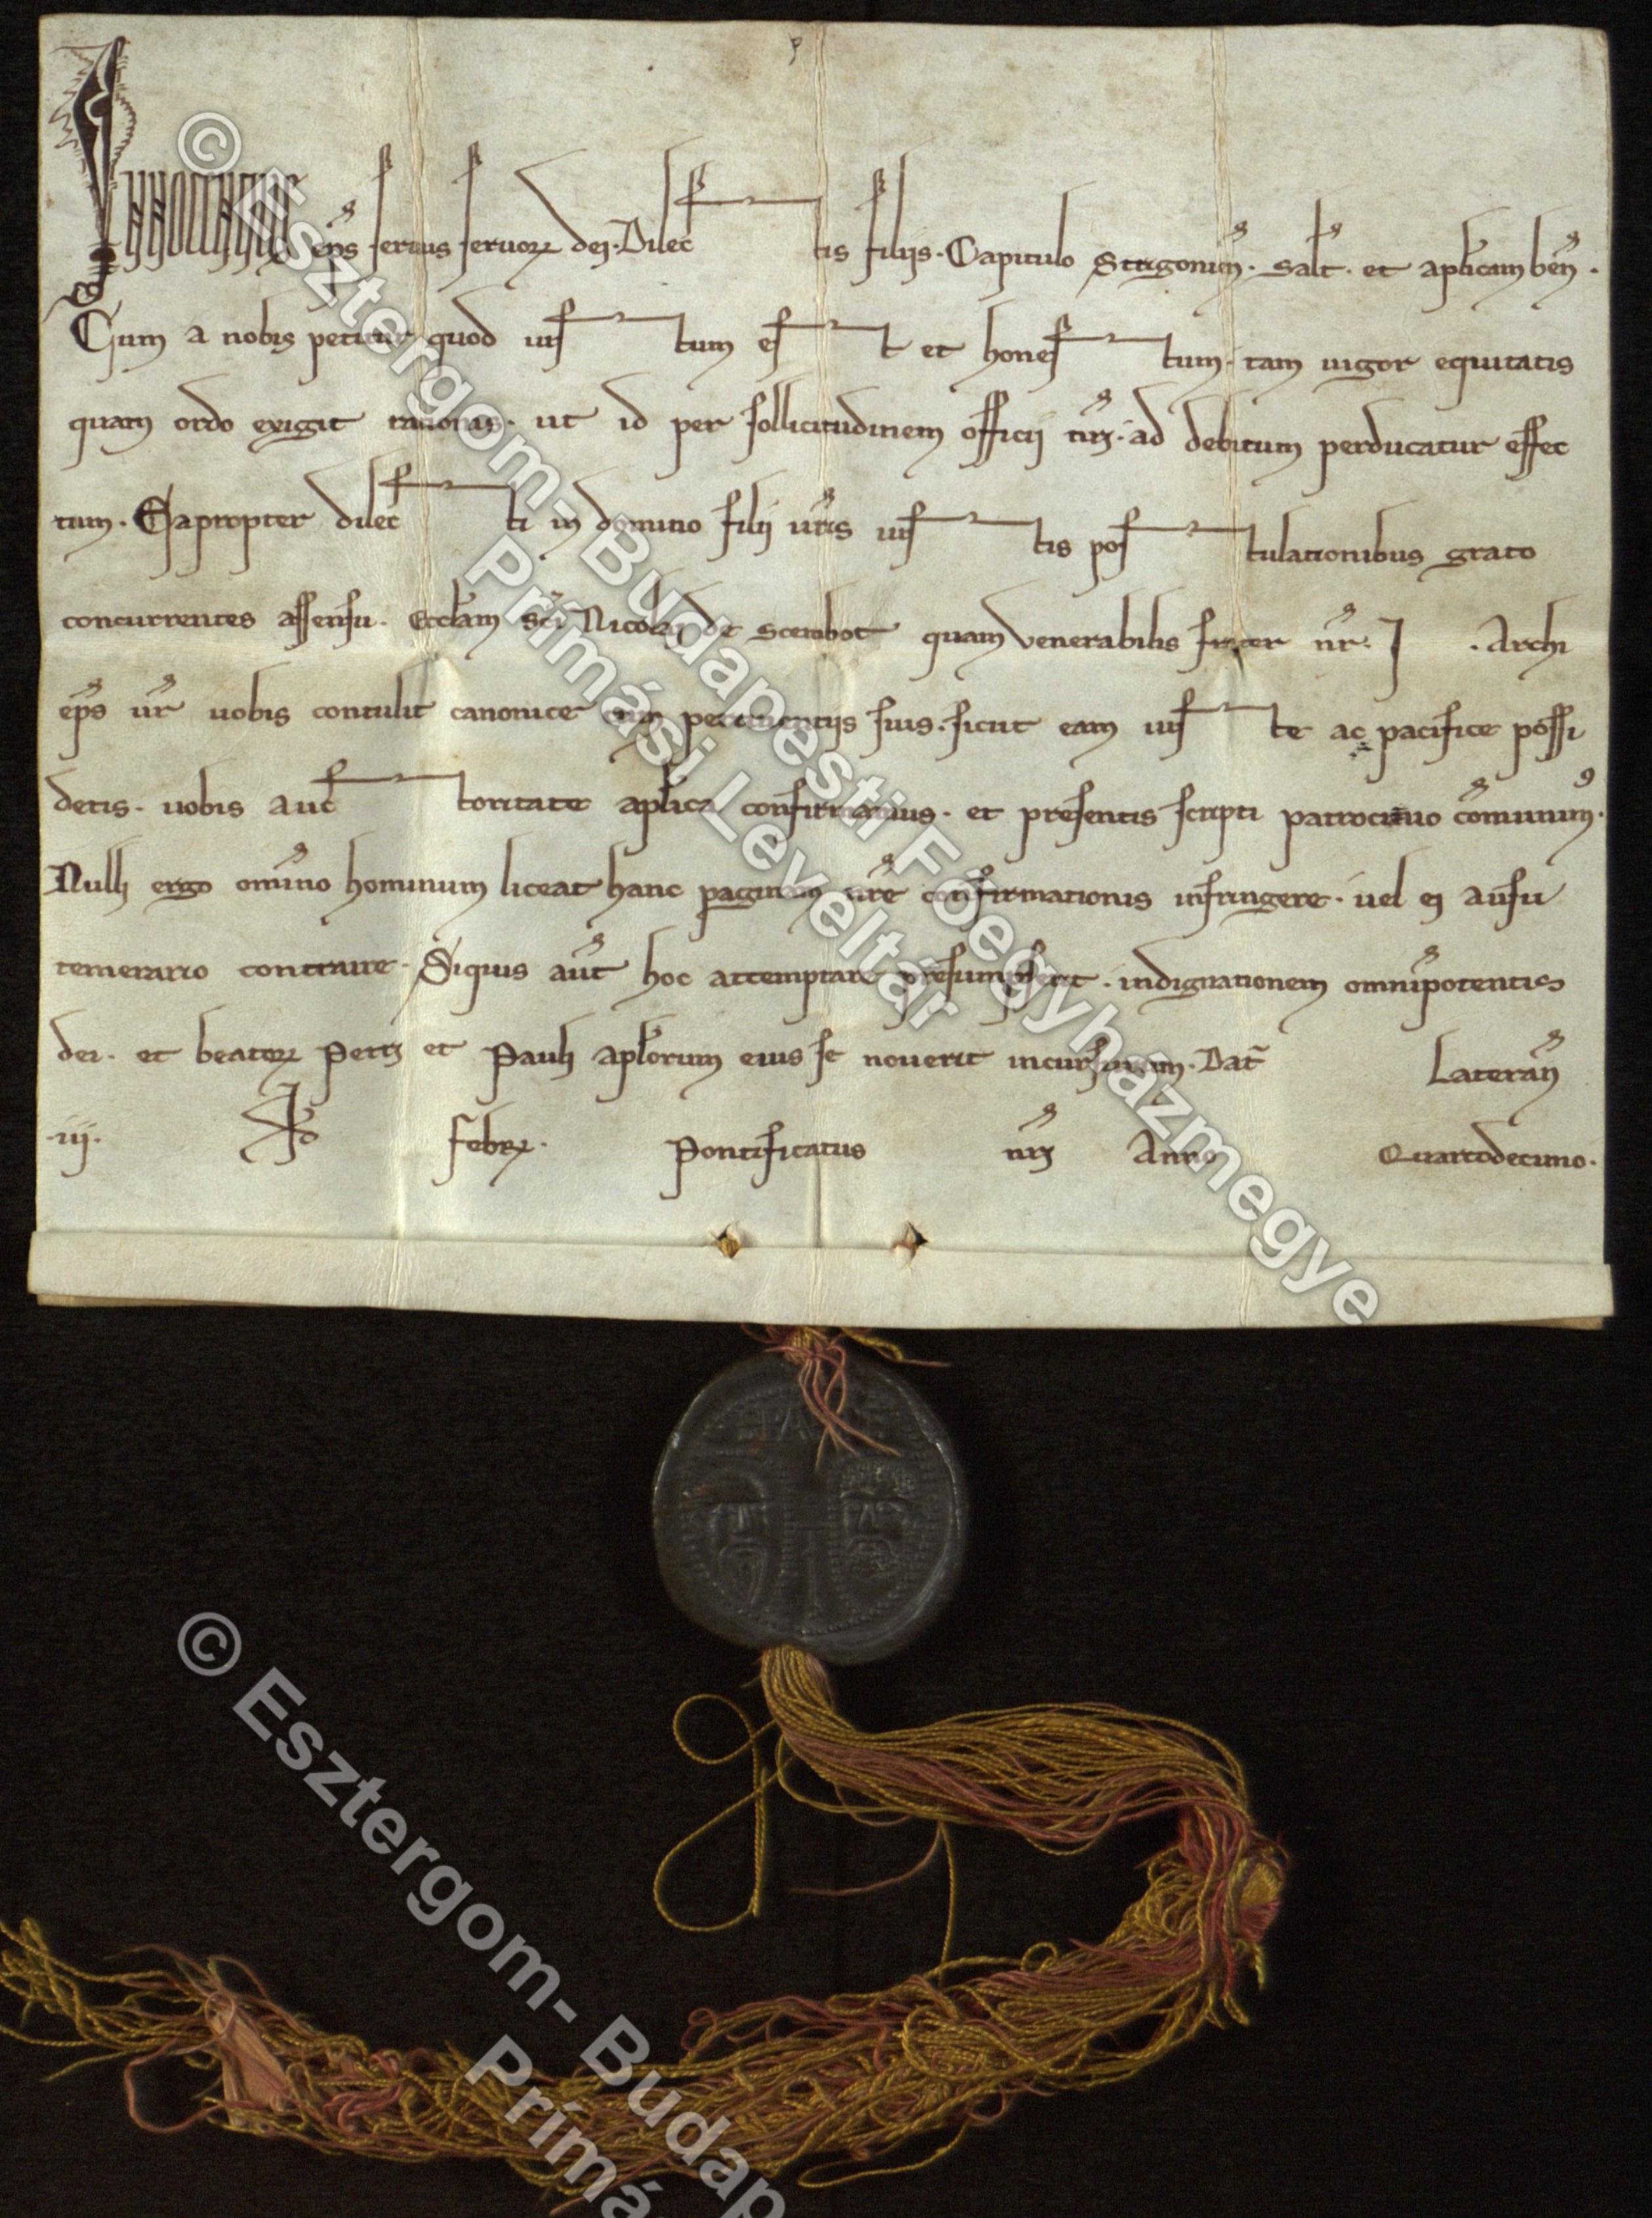 Innocentius ep̄s seruus seruoꝝ dei. Dilectis filiis. Capitulo Strigonien̄. salt̄. et aplicam ben̄.
Cum a nobis petitur quod iustum est et honestum. tam uigor equitatis
quam ordo exigit rationis. ut id per sollicitudinem officij nr̄i. ad debitum perducatur effec
tum. Eapropter dilecti in domino filij ur̄is iustis postulationibus grato
concurrentes assensu. Eccl̄am sc̄i Nicolai de Scenbot quam venerabilis frater nr̄. J . Archi
ep̄s ur̄ uobis contulit canonice cum pertinentijs suis. sicut eam iuste ac pacifice possi
detis. uobis auctoritate apl̄ica confirmamus. et presentis scripti patrocinio cōmunimꝰ.
Nulli ergo omīno hominum liceat hanc paginam nr̄e confirmationis infringere. uel ei ausu
temerario contraire. Siquis aut̄ hoc attemptare presumpserit. indignationem omnīpotentis
dei. et beatoꝝ Petri et Pauli apl̄orum eius se nouerit incursurum. Dat̄ Lateran̄
.iij. kl̄ febrꝝ. Pontificatus nr̄i Anno Quartodecimo.
PA
© Esztergom- Budapesti Főegyházmegye
Prímási Levéltár
© Esztergom- Budap
Prímá